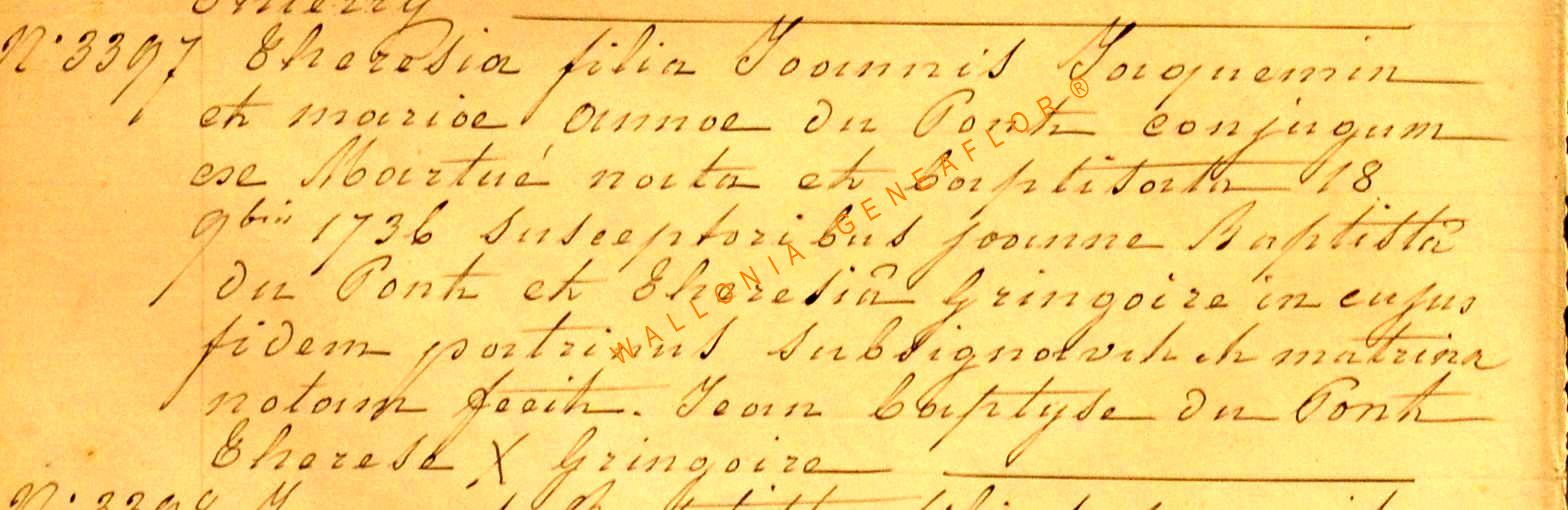 Thierry
N° 3397 Theresia filia Joannis Jaquemin
et marioe annoe du Pont conjugum
ex Martué nata et baptisata 18
9bris 1736 susceptoribus joanne Baptistâ
du Pont et Theresiâ Gringoire in cujus
fidem patrinus subsignavit et matrina
notam fecit. Jean baptyse du Pont
Therese X Gringoire
N° 3398
WALLONIA GENEAFLOR®